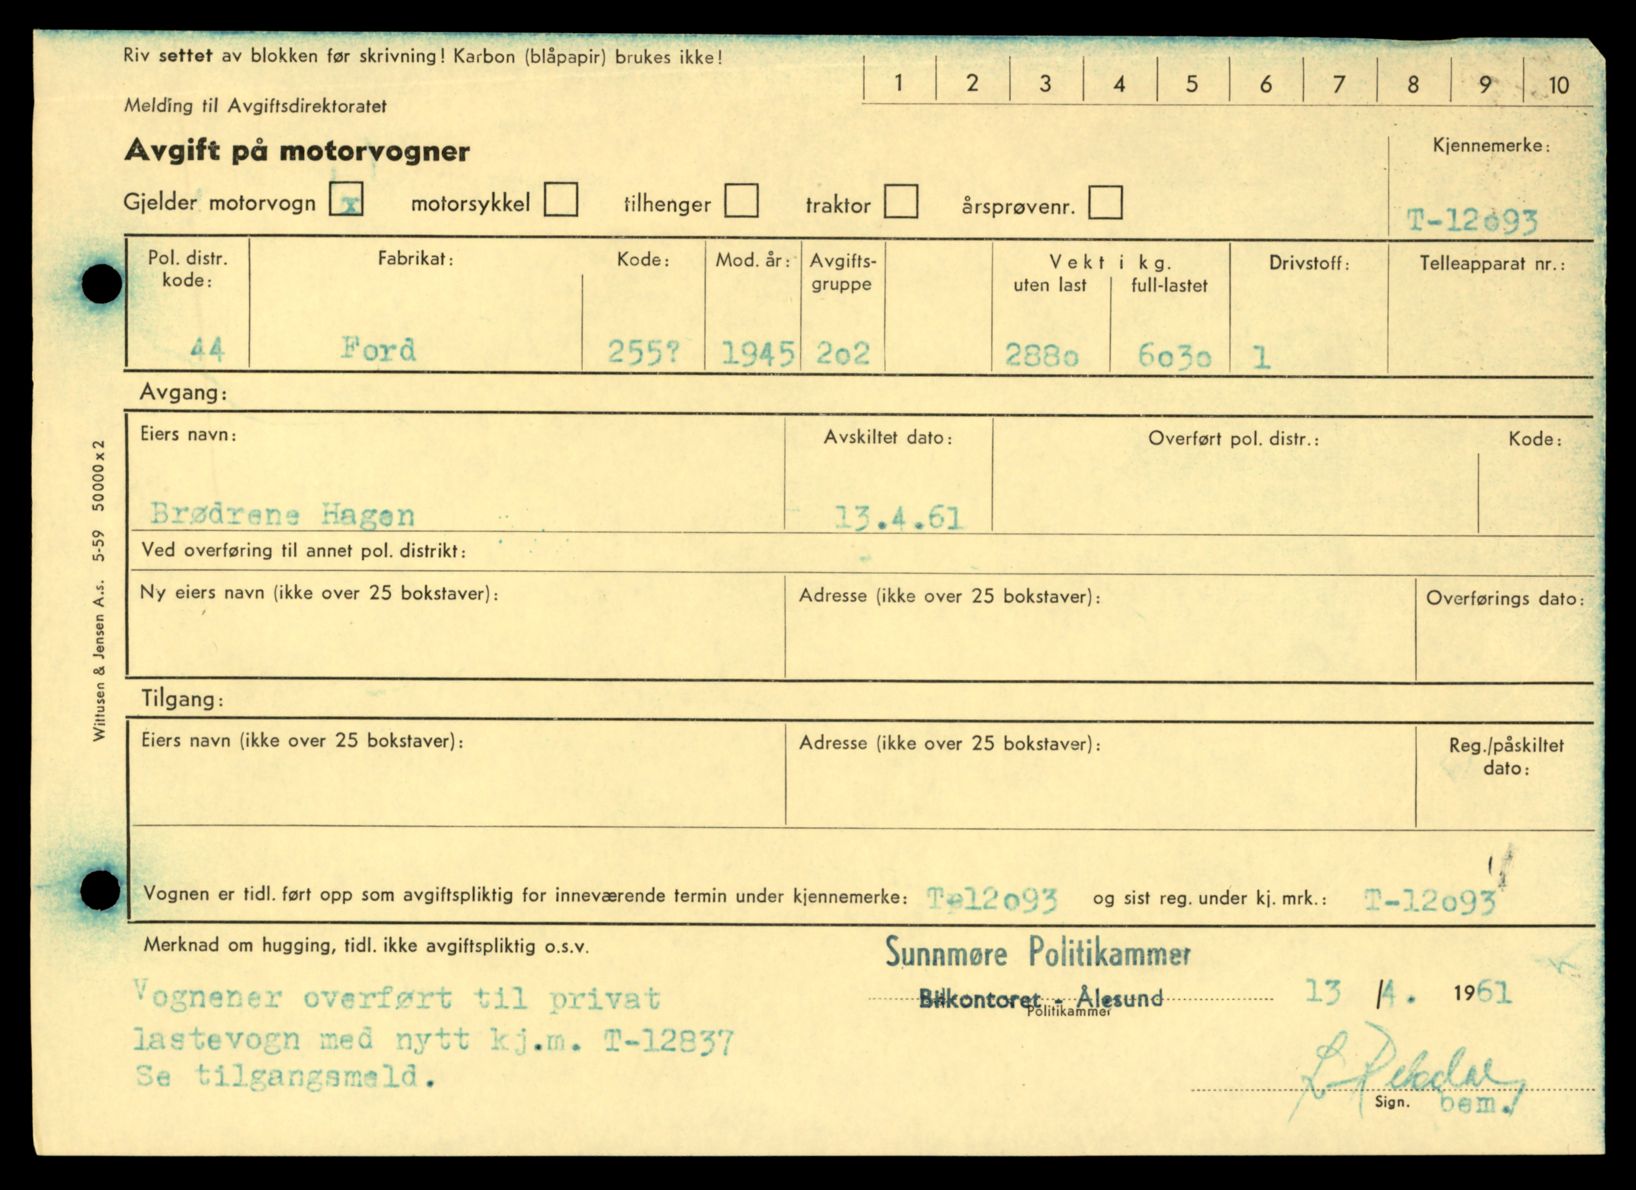 Riv settet av blokken før skrivning! Karbon (blåpapir) brukes ikke!
1 2 3 4 5 6 7 8 9 10
Melding til Avgiftsdirektoratet
Avgift på motorvogner
Kjennemerke:
Gjelder motorvogn x motorsykkel tilhenger traktor årsprøvenr.
T-12o93
Pol. distr. kode: Fabrikat: Kode: Mod. år: Avgifts-gruppe Vekt i kg. uten last full-lastet Drivstoff: Telleapparat nr.:
44 Ford 255? 1945 2o2 288o 6o3o 1
Avgang:
Eiers navn: Avskiltet dato: Overført pol. distr.: Kode:
Brødrene Hagen 13.4.61
Ved overføring til annet pol. distrikt:
Ny eiers navn (ikke over 25 bokstaver): Adresse (ikke over 25 bokstaver): Overførings dato:
Tilgang:
Eiers navn (ikke over 25 bokstaver): Adresse (ikke over 25 bokstaver): Reg./påskiltet dato:
Vognen er tidl. ført opp som avgiftspliktig for inneværende termin under kjennemerke: Te12o93 og sist reg. under kj. mrk.: T-12o93
Merknad om hugging, tidl. ikke avgiftspliktig o.s.v.
Sunnmøre Politikammer
Bilkontoret - Ålesund 13 /4. 1961
Politikammer
Vognener overført til privat
lastevogn med nytt kj.m. T-12837
Se tilgangsmeld.
Sign. bem.
Wittusen & Jensen A.s. 5-59 50000x2